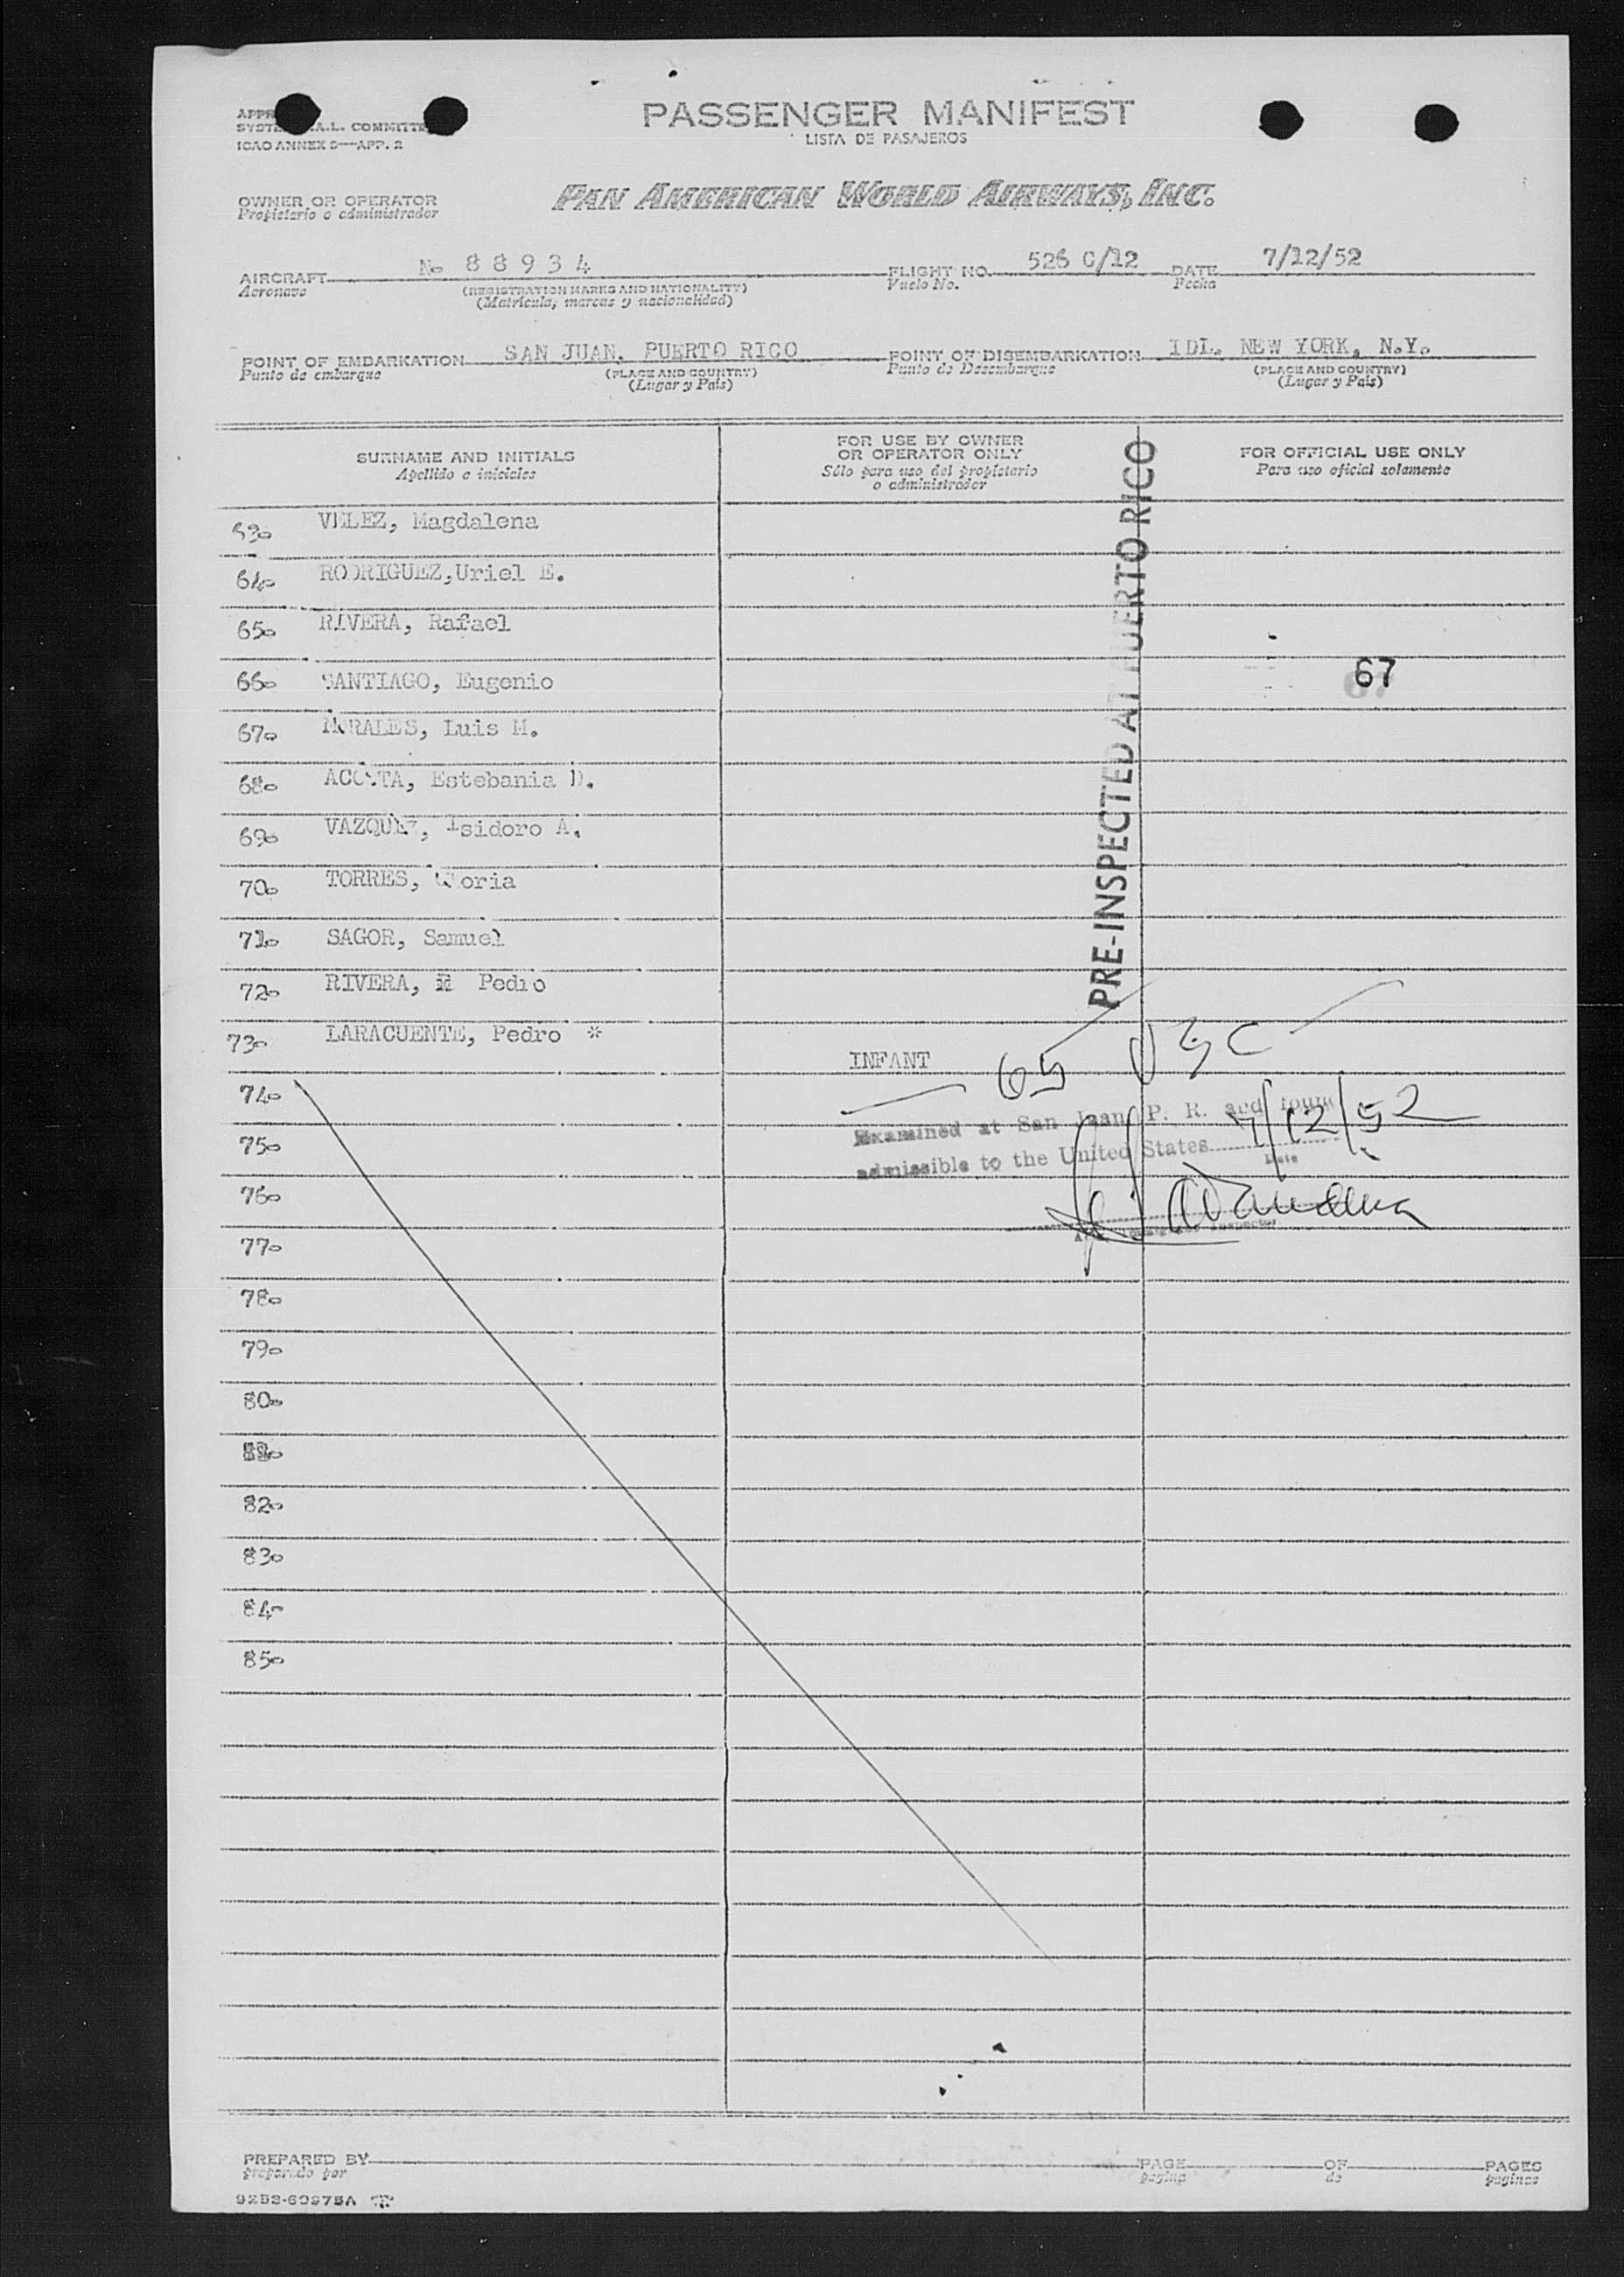 PASSENGER MANIFEST
LISTA DE PASAJEROS
SYSTE A.L. COMMITTE
ICAO ANNEX 9—APP. 2
OWNER OR OPERATOR
Propietario o administrador
PAN AMERICAN WORLD AIRWAYS, INC.
AIRCRAFT No 88934 FLIGHT NO. 526 C/12 DATE 7/12/52
Aeronave (REGISTRATION MARKS AND NATIONALITY) Vuelo No. Fecha
(Matrícula, marcas y nacionalidad)
POINT OF EMBARKATION SAN JUAN, PUERTO RICO POINT OF DISEMBARKATION IDL. NEW YORK, N.Y.
Punto de embarque (PLACE AND COUNTRY) Punto de Desembarque (PLACE AND COUNTRY)
(Lugar y País) (Lugar y País)
SURNAME AND INITIALS
Apellido e iniciales
FOR USE BY OWNER
OR OPERATOR ONLY
Sólo para uso del propietario
o administrador
FOR OFFICIAL USE ONLY
Para uso oficial solamente
PRE-INSPECTED AT PUERTO RICO
63. VELEZ, Magdalena
64. RODRIGUEZ,Uriel E.
65. RIVERA, Rafael
66. SANTIAGO, Eugenio
67
67. MORALES, Luis M.
68. ACOSTA, Estebania D.
69. VAZQUEZ, Isidoro A.
70. TORRES, Gloria
71. SAGOR, Samuel
72. RIVERA, Pedro
73. LARACUENTE, Pedro *
INFANT
65 USC
74.
Examined at San Juan, P. R. and found
7/12/52
75.
admissible to the United States
Date
76.
77.
78.
79.
80.
81.
82.
83.
84.
85.
PREPARED BY PAGE OF PAGES
preparado por pagina de paginas
9253-60975A